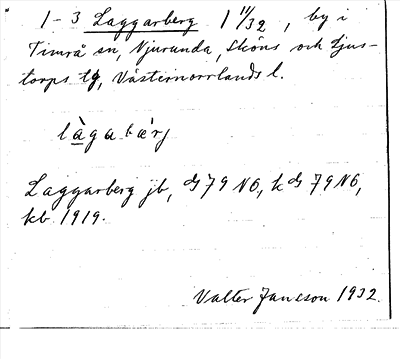 1-3 Laggarberg 1 11/32, by i
Timrå sn, Njurunda, Sköns och Ljus-
torps tg, Västernorrlands l.
làgabærj
Laggarberg jb, G 79 NO, k G 79 NO,
kb 1919.
Valter Jansson 1932.